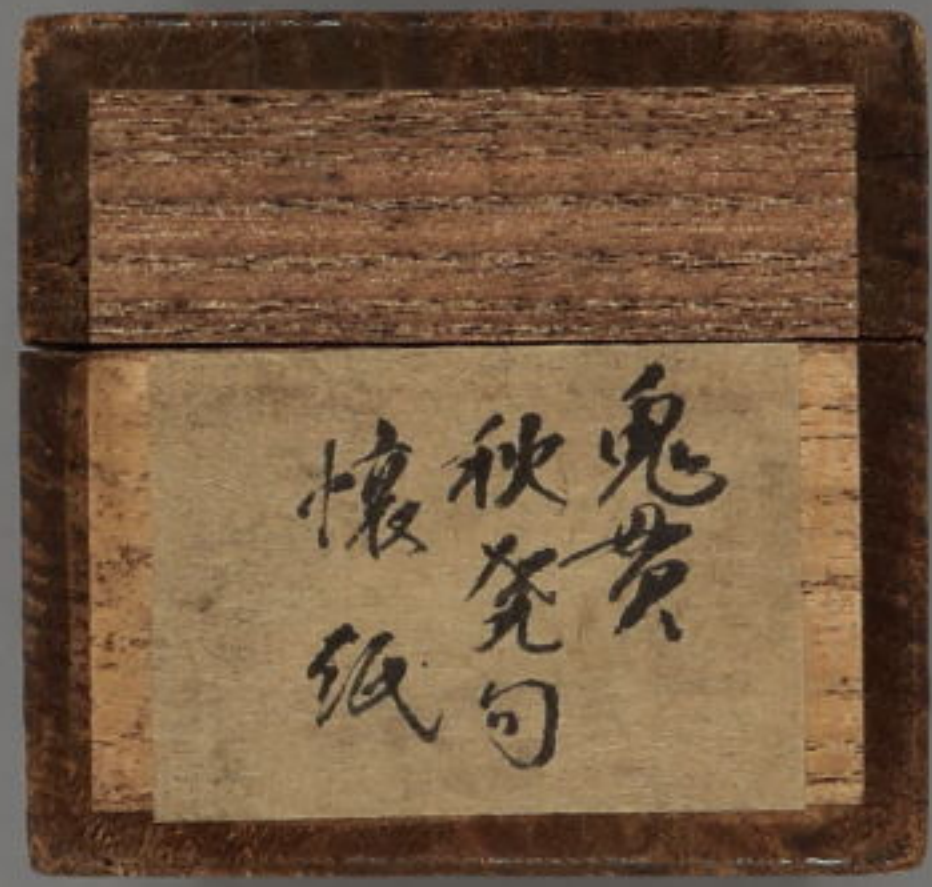 鬼貫
秋発句
懐紙